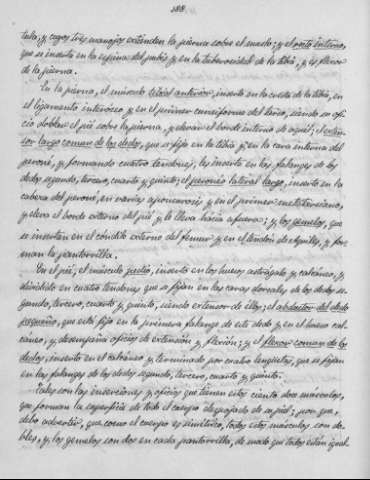 188.
tula; y cuyos tres manojos extienden la pierna sobre el muslo; y el recto interno,
que se inserta en la espina del pubis y en la tuberosidad de la tibia, y es flexor
de la pierna.
En la pierna, el músculo tibial anterior, inserto en la cresta de la tibia, en
el ligamento interóseo y en el primer cuneiforme del tarso, siendo su ofi-
cio doblar el pié sobre la pierna, y elevar el borde interno de aquel; el exten-
sor largo comun de los dedos, que se fija en la tibia y en la cara interna del
peroné, y formando cuatro tendones, los inserta en las falanges de los
dedos segundo, tercero, cuarto y quinto; el peronéo lateral largo, inserto en la
cabeza del peroné, en varias aponeurosis y en el primer metatarsiano,
y eleva el borde externo del pié y lo lleva hácia afuera; y los gemelos, que
se insertan en el cóndilo externo del femur y en el tendón de Aquiles, y for-
man la pantorrilla.
En el pié, el músculo pedio, inserto en los huesos astrágalo y calcáneo, y
dividido en cuatro tendones que se fijan en las caras dorsales de los dedos se-
gundo, tercero, cuarto y quinto, siendo extensor de ellos; el abductor del dedo
pequeño, que está fijo en la primera falange de este dedo y en el hueso cal-
cáneo, y desempeña oficios de extensión y flexión; y el flexor comun de los
dedos, inserto en el calcáneo y terminado por cuatro lengüetas, que se fijan
en las falanges de los dedos segundo, tercero, cuarto y quinto.
Tales son las inserciones y oficios que tienen estos ciento dos músculos,
que forman la superficie de todo el cuerpo despojado de la piel; por que,
debo advertir, que como el cuerpo es simétrico, todos estos músculos son do-
bles, y los gemelos son dos en cada pantorrilla, de modo que todos están igual-